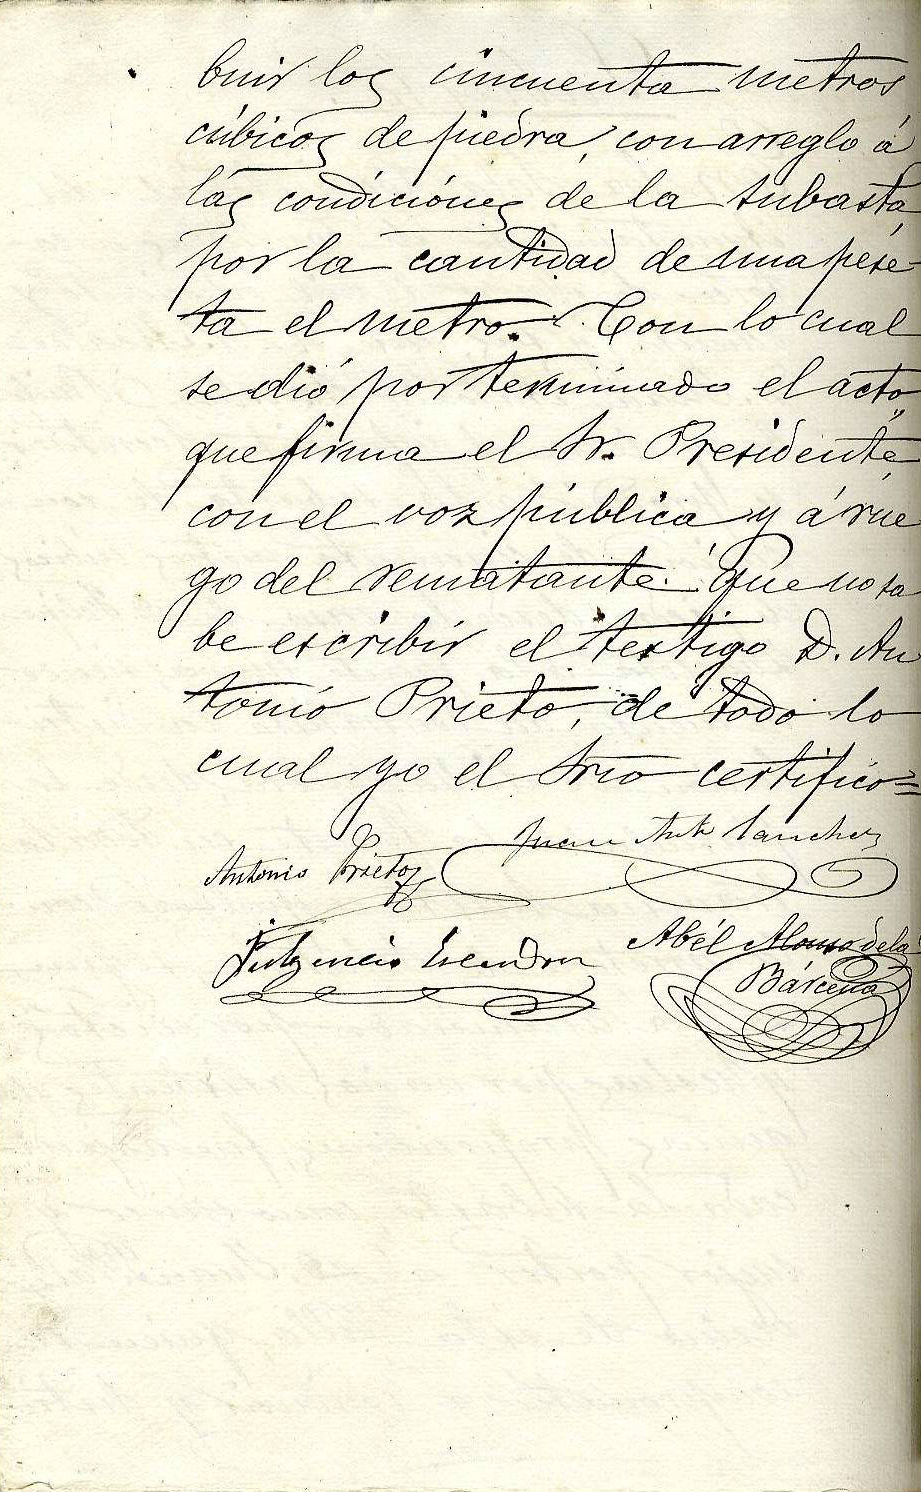 buir los cincuenta metros
cúbicos de piedra, con arreglo á
las condiciónes de la subasta
por la cantidad de una pese-
ta el metro. Con lo cual
se dió por terminado el acto
que firma el Sr. Presidente,
con el voz pública y á rue
go del rematante que no sa
be escribir el testigo D. An
tonio Prieto, de todo lo
cual yo el Srio certifico=
Juan Antº Sanchez
Antonio Prieto
Fulgencio Escudero
Abél Alonso de la
Bárcena